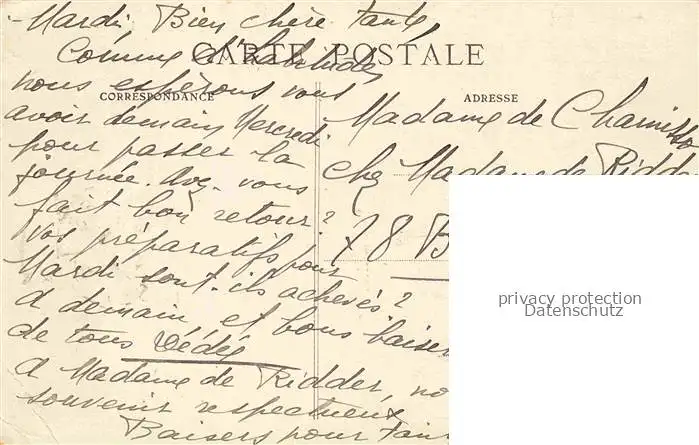 Mardi. Bien chère Tante,
Comme d'habitude,
CARTE POSTALE
nous espérons vous
CORRESPONDANCE
ADRESSE
avoir demain Mercredi
pour passer la
journée. Avez-vous
fait bon retour?
vos préparatifs pour
Mardi sont-ils achevés?
à demain et bons baisers
de tous Dédé
à Madame de Ridder,
souvenir respectueux
Baisers pour
Madame de Chamisso
chez Madame de Ridde
78 B
privacy protection
Datenschutz